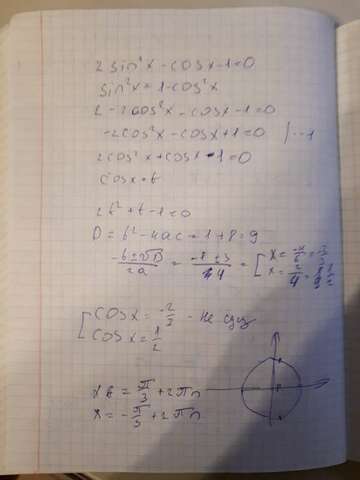 2sin²x-cosx-1=0
sin²x=1-cos²x
2-2cos²x-cosx-1=0
-2cos²x-cosx+1=0 /·-1
2cos²x+cosx-1=0
cosx=t
2t²+t-1=0
D=b²-4ac=1+8=9
-b±√D/2a = -1±3/4 = [x=
x=
[cosx=-2/3 - не сущ
cosx=1/2
x=π/3+2πn
x=-π/3+2πn